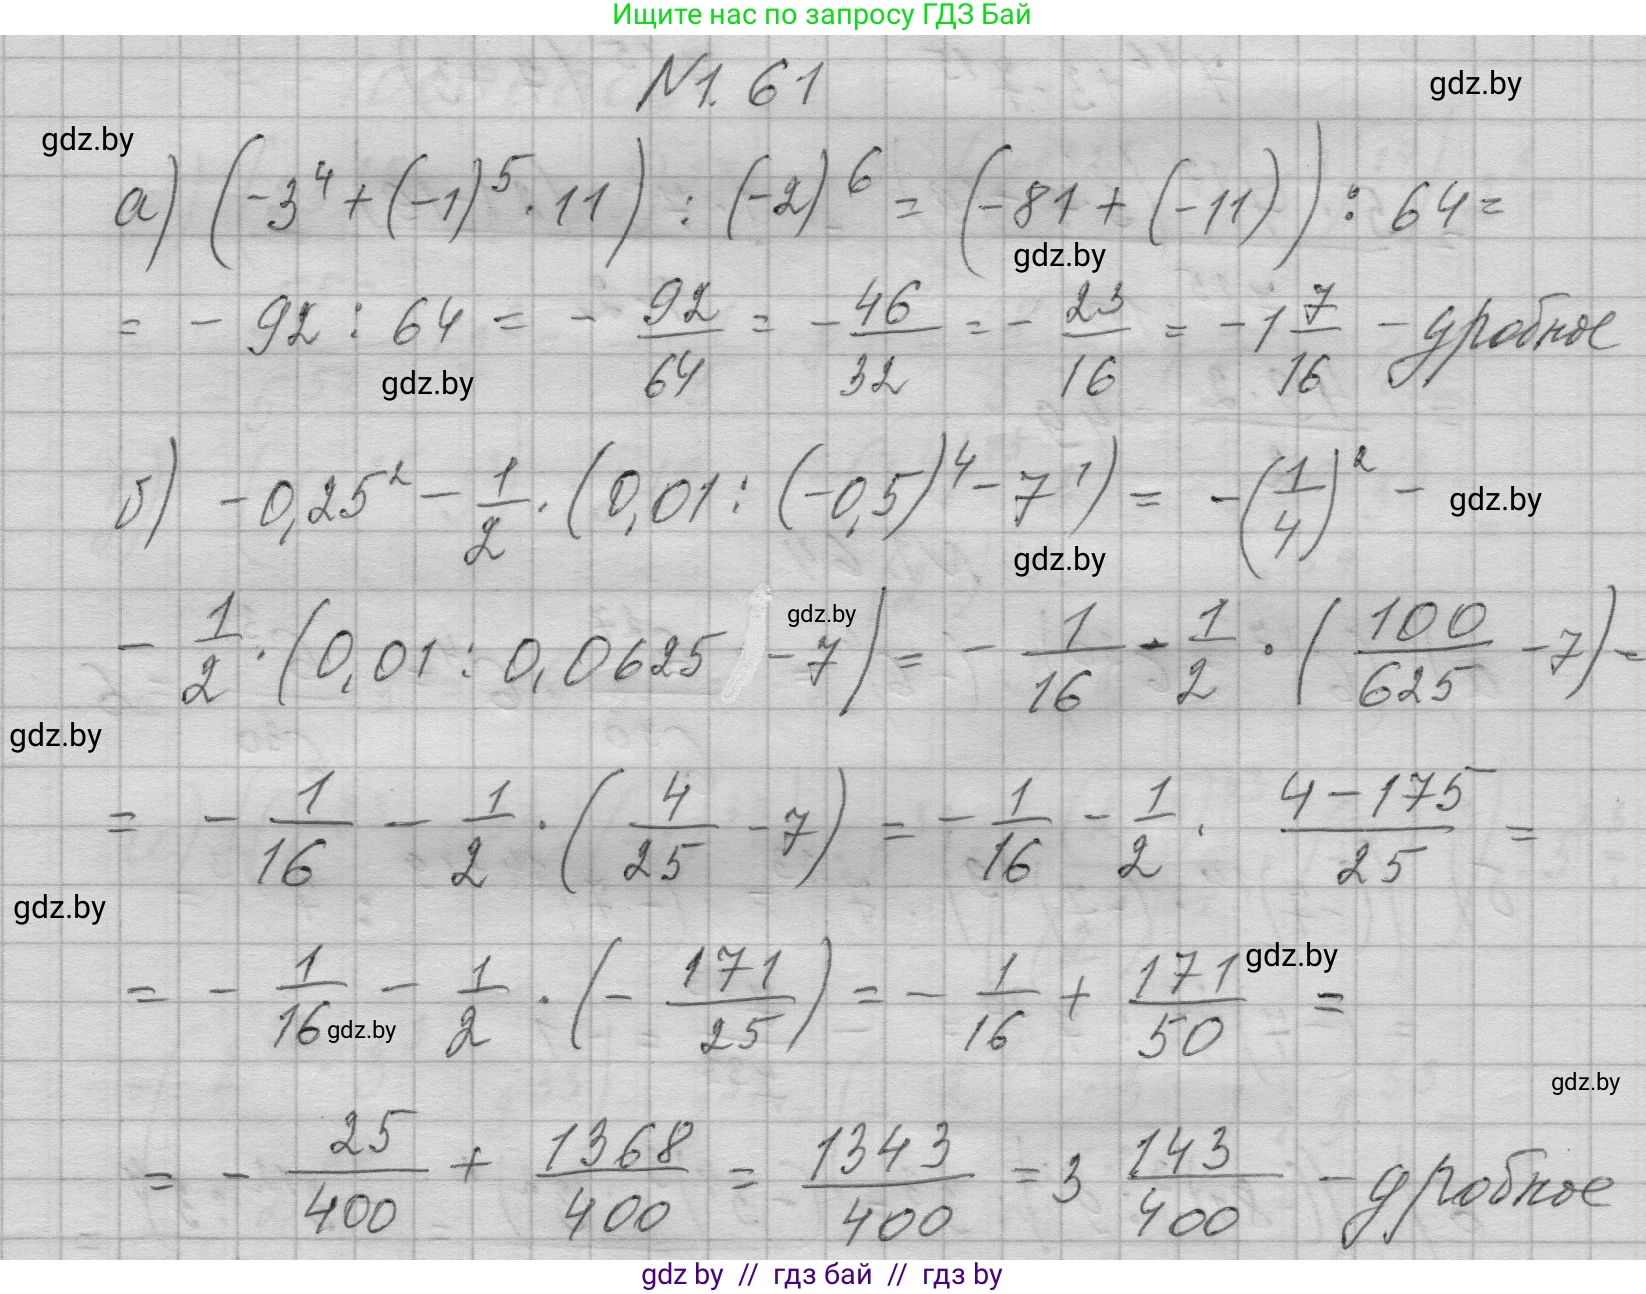 Ищите нас по запросу ГДЗ Бай
№1.61
gdz.by
gdz.by
а) (-3⁴ + (-1)⁵ · 11) : (-2)⁶ = (-81 + (-11)) : 64 =
gdz.by
= - 92 : 64 = - 92/64 = - 46/32 = - 23/16 = -1 7/16 - дробное
gdz.by
б) -0,25² - 1/2 · (0,01 : (-0,5)⁴ - 7¹) = -(1/4)² -
gdz.by
gdz.by
- 1/2 · (0,01 : 0,0625 - 7) = - 1/16 - 1/2 · (100/625 - 7) =
gdz.by
gdz.by
= - 1/16 - 1/2 · (4/25 - 7) = - 1/16 - 1/2 · (4-175)/25 =
gdz.by
= - 1/16 - 1/2 · (- 171/25) = - 1/16 + 171/50 =
gdz.by
gdz.by
gdz.by
= - 25/400 + 1368/400 = 1343/400 = 3 143/400 - дробное
gdz by // гдз бай // гдз by